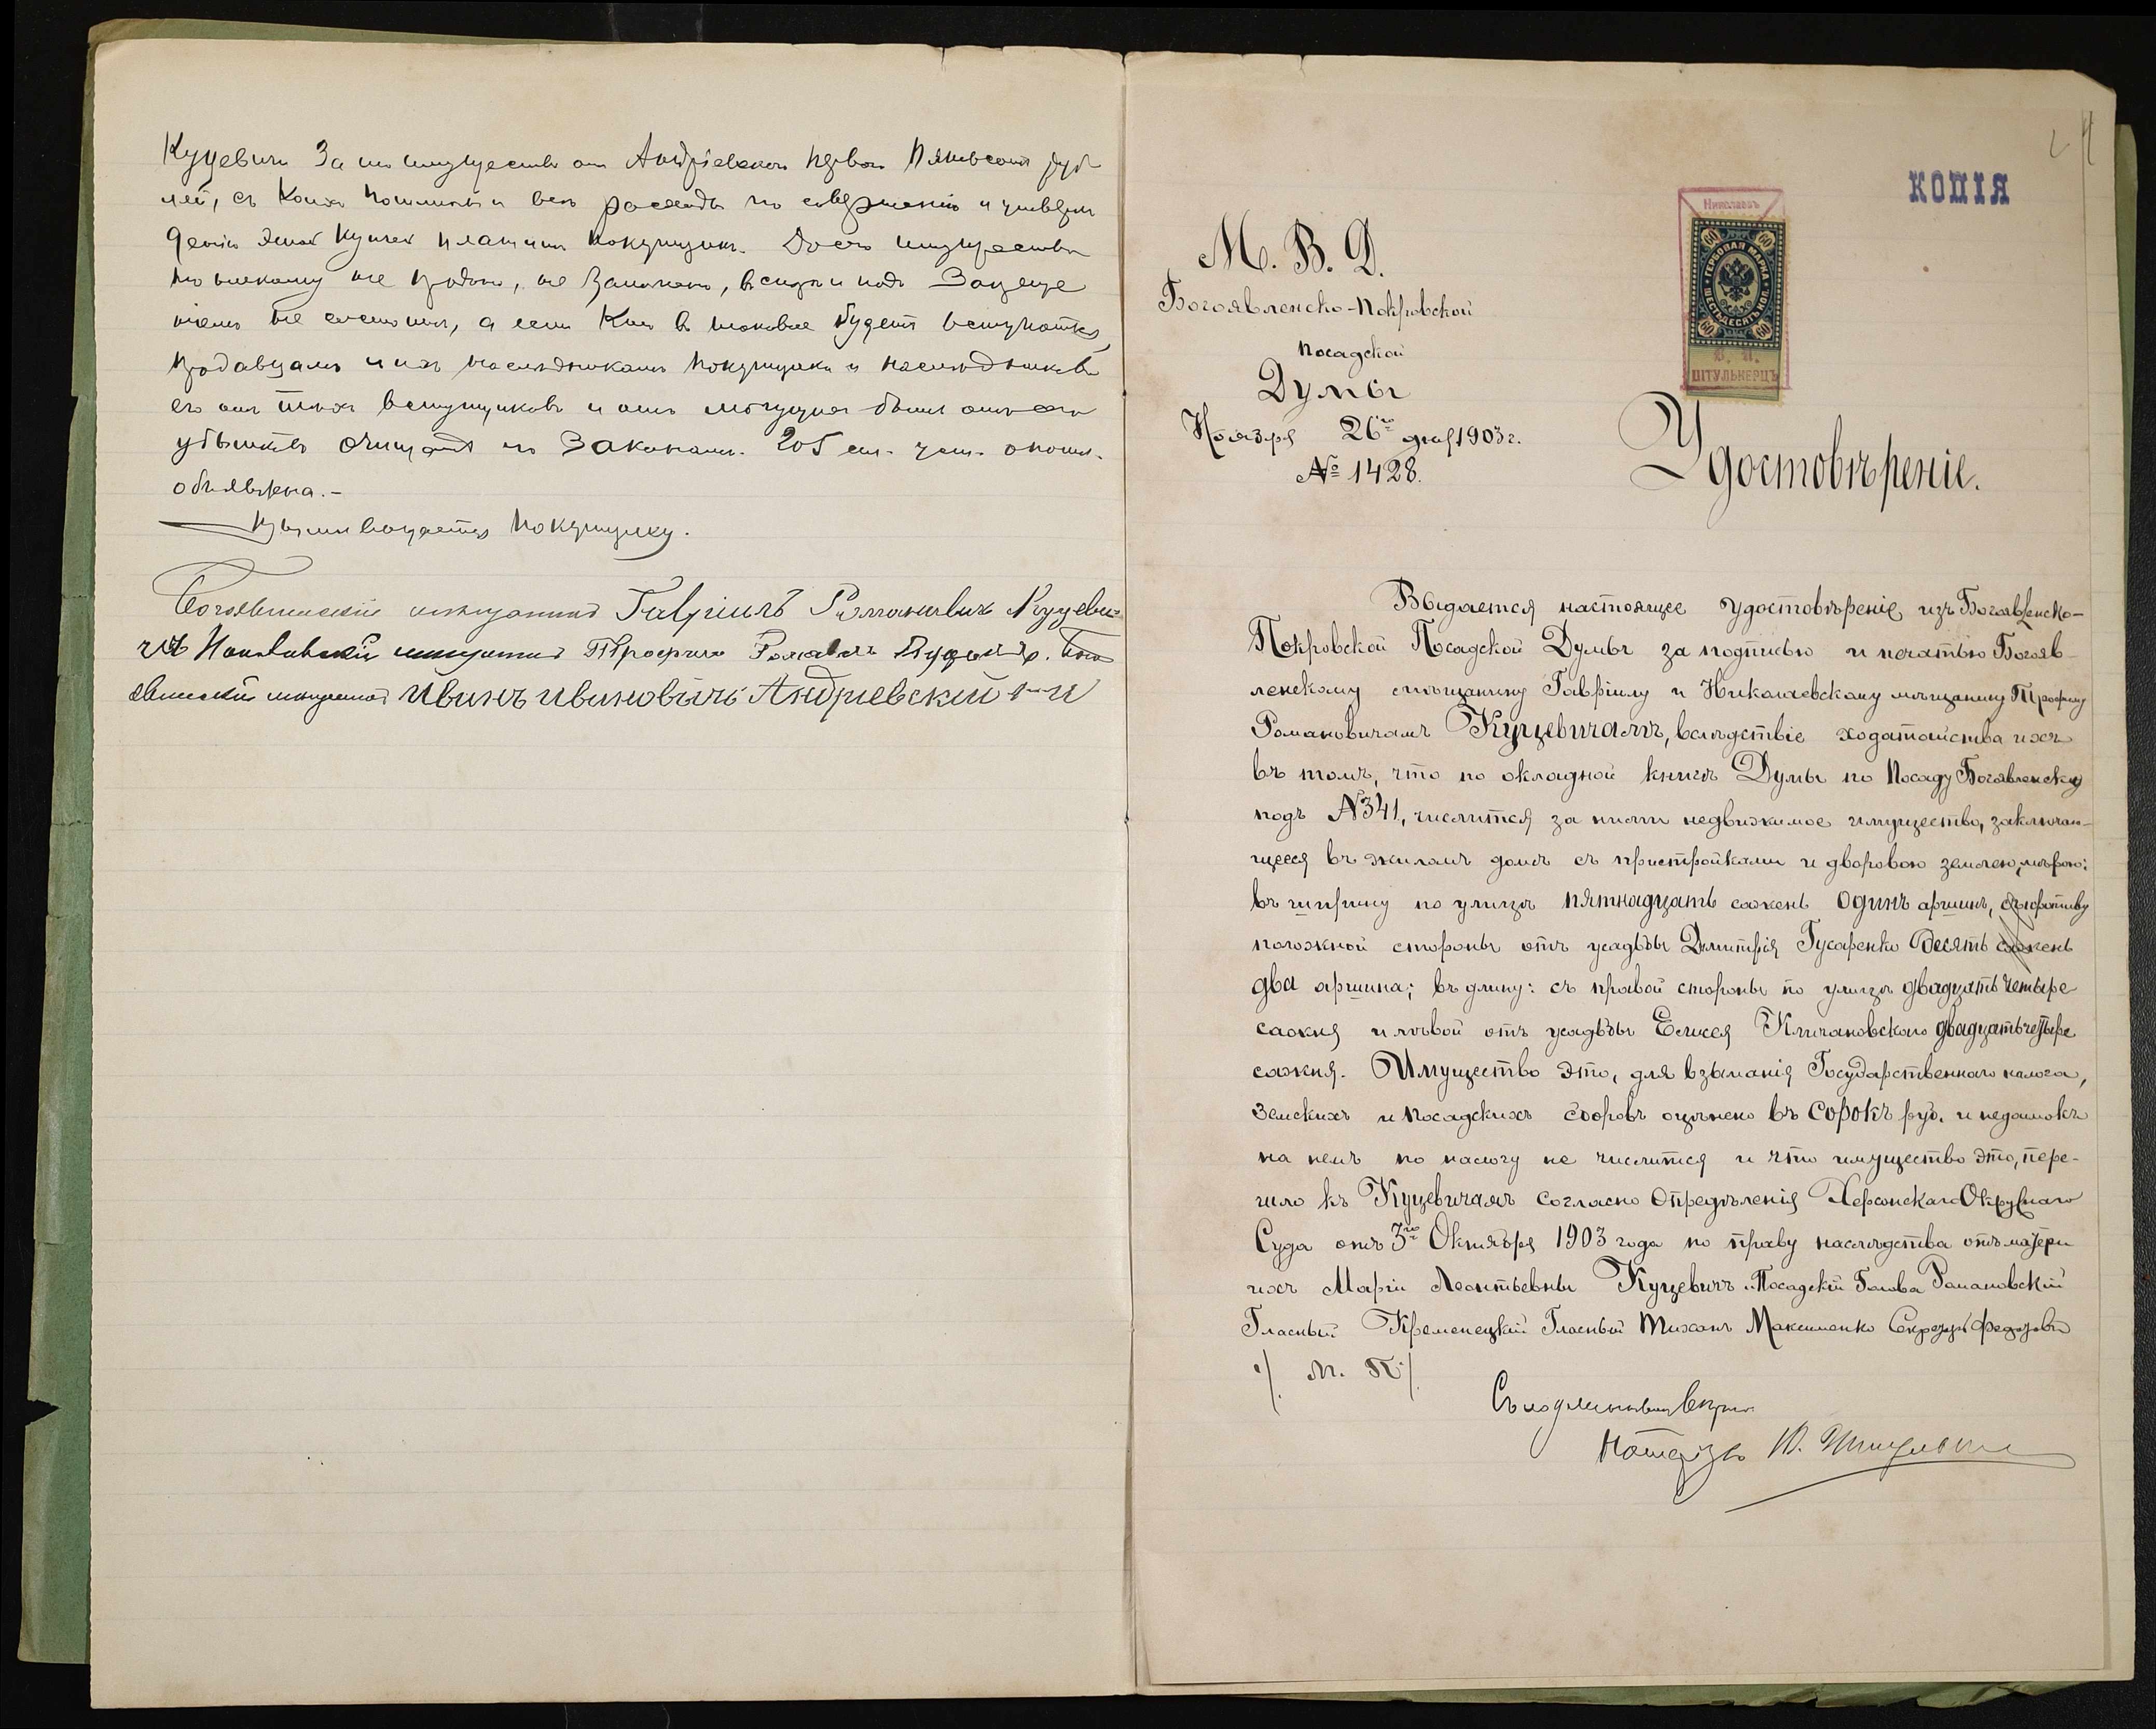 Куцевичи За имущество от Андріевской первой Пятьсот руб
лей, съ коихъ пошлины и все расходы по совершенію и утверж
денію этой Купчей платитъ покупщикъ. До сего имущество
никому не продано, не заложено, въ споре и подъ Запреще
ніемъ не состоитъ, а если кто въ таковое будетъ вступаться,
продавцамъ и ихъ наследникамъ покупщика и наследниковъ
его отъ техъ вступщиковъ и отъ могущихъ быть отъ сего
убытковъ очищать по Законамъ. 205 ст. уст. о пошл.
объявлена.–
выдается покупщику.
Богоявленскій мещанинъ Гавріилъ Романовичъ Куцеви-
чъ Николаевскій мещанинъ Трофимъ Романовъ Куцевичъ. Бого
явленскій мещанинъ Иванъ Ивановичъ Андриевский 1-й
КОПІЯ
Николаевъ
60 60
ГЕРБОВАЯ МАРКА
ШЕСТЬДЕСЯТЪ КОП.
60 60
В. И.
ШТУЛЬКЕРЦЪ
М. В. Д.
Богоявленско-Покровской
Посадской
Думы
Ноября 26го дня 1903 г.
№ 1428.
Удостовѣреніе.
Выдается настоящее удостовѣреніе изъ Богоявленско-
Покровской Посадской Думы за подписью и печатью Богояв-
ленскому мѣщанину Гавріилу и Николаевскому мѣщанину Трофиму
Романовичамъ Куцевичамъ, вслѣдствіе ходатайства ихъ
въ томъ, что по окладной книгѣ Думы по Посаду Богоявленску
подъ №341, числится за ними недвижимое имущество, заключаю-
щееся въ жиломъ домѣ съ пристройками и дворовою землею, мѣрою:
въ ширину по улицѣ пятнадцать сажень одинъ аршинъ, съ противу
положной стороны отъ усадьбы Димитрія Гусаренко десять сажень
два аршина; въ длину: съ правой стороны по улицѣ двадцать четыре
сажня и лѣвой отъ усадьбы Елисея Кличановскаго двадцать четыре
сажня. Имущество это, для взыманія Государственнаго налога,
Земскихъ и Посадскихъ сборовъ оцѣнено въ сорокъ руб. и недоимокъ
на немъ по налогу не числится и что имущество это, пере-
шло къ Куцевичамъ согласно Опредѣленія Херсонскаго Окружнаго
Суда отъ 3го Октября 1903 года по праву наслѣдства отъ матери
ихъ Маріи Леонтьевны Куцевичъ. Посадскій Голова Романовскій
Гласный Кременецкій Гласный Тихонъ Максименко Секретарь Федоровъ
/. М. П. /.
Съ подлиннымъ верно
Нотаріусъ В. Штулькерцъ